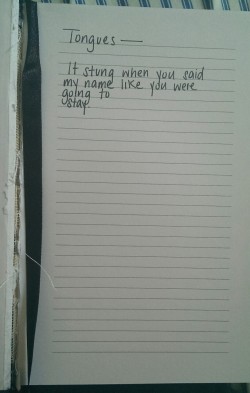 Tongues —
It stung when you said
my name like you were
going to
stay